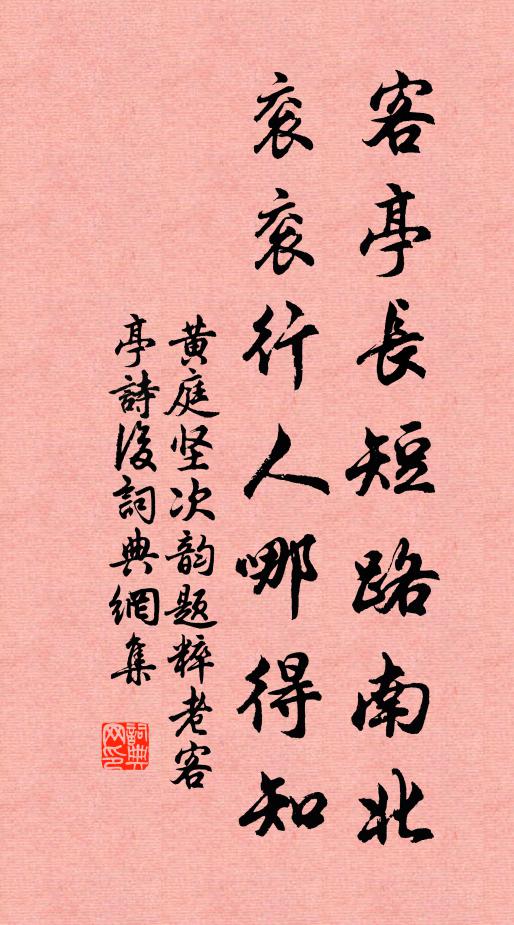 客亭長短路南北
衮衮行人哪得知
黄庭坚次韵题粹老客
亭詩後詞典網集
詞典网印